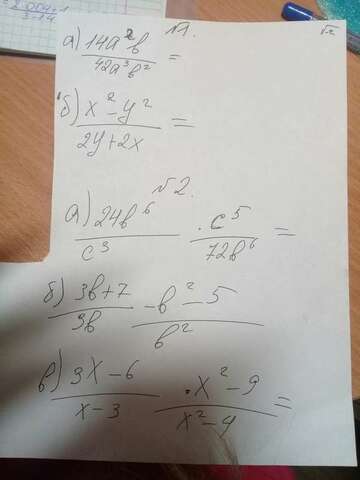 №1.
а) 14a²b / 42a³b² =
б) x² - y² / 2y + 2x =
№2.
а) 24b⁶ / c³ · c⁵ / 72b⁶ =
б) 3b + 7 / 3b - b² - 5 / b²
в) 3x - 6 / x - 3 · x² - 9 / x² - 4 =